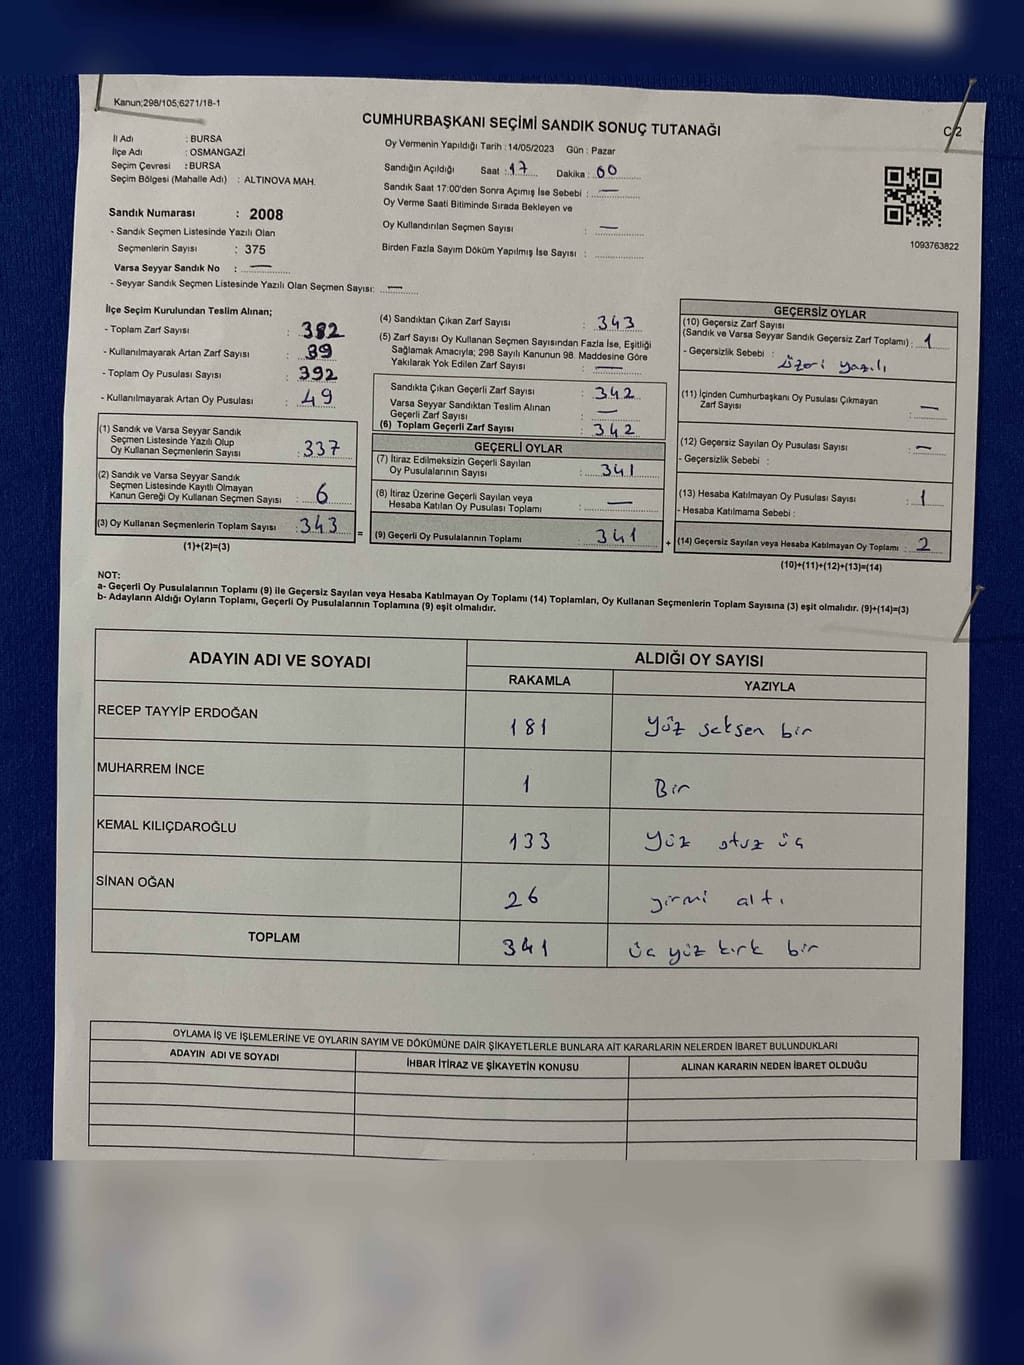 Kanun;298/105;6271/18-1
C/2
CUMHURBAŞKANI SEÇİMİ SANDIK SONUÇ TUTANAĞI
İl Adı : BURSA
İlçe Adı : OSMANGAZİ
Seçim Çevresi : BURSA
Seçim Bölgesi (Mahalle Adı) : ALTINOVA MAH.
Oy Vermenin Yapıldığı Tarih : 14/05/2023 Gün : Pazar
Sandığın Açıldığı Saat : 17 Dakika : 00
Sandık Saat 17:00'den Sonra Açımış İse Sebebi : —
Oy Verme Saati Bitiminde Sırada Bekleyen ve
Oy Kullandırılan Seçmen Sayısı : —
Birden Fazla Sayım Döküm Yapılmış İse Sayısı :
1093763822
Sandık Numarası : 2008
- Sandık Seçmen Listesinde Yazılı Olan
Seçmenlerin Sayısı : 375
Varsa Seyyar Sandık No : —
- Seyyar Sandık Seçmen Listesinde Yazılı Olan Seçmen Sayısı: —
İlçe Seçim Kurulundan Teslim Alınan;
- Toplam Zarf Sayısı : 382
- Kullanılmayarak Artan Zarf Sayısı : 39
- Toplam Oy Pusulası Sayısı : 392
- Kullanılmayarak Artan Oy Pusulası : 49
(1) Sandık ve Varsa Seyyar Sandık
Seçmen Listesinde Yazılı Olup
Oy Kullanan Seçmenlerin Sayısı : 337
(2) Sandık ve Varsa Seyyar Sandık
Seçmen Listesinde Kayıtlı Olmayan
Kanun Gereği Oy Kullanan Seçmen Sayısı : 6
(3) Oy Kullanan Seçmenlerin Toplam Sayısı : 343 =
(1)+(2)=(3)
(4) Sandıktan Çıkan Zarf Sayısı : 343
(5) Zarf Sayısı Oy Kullanan Seçmen Sayısından Fazla İse, Eşitliği
Sağlamak Amacıyla; 298 Sayılı Kanunun 98. Maddesine Göre
Yakılarak Yok Edilen Zarf Sayısı : —
Sandıkta Çıkan Geçerli Zarf Sayısı : 342
Varsa Seyyar Sandıktan Teslim Alınan
Geçerli Zarf Sayısı : —
(6) Toplam Geçerli Zarf Sayısı : 342
GEÇERLİ OYLAR
(7) İtiraz Edilmeksizin Geçerli Sayılan
Oy Pusulalarının Sayısı : 341
(8) İtiraz Üzerine Geçerli Sayılan veya
Hesaba Katılan Oy Pusulası Toplamı : —
(9) Geçerli Oy Pusulalarının Toplamı : 341 +
GEÇERSİZ OYLAR
(10) Geçersiz Zarf Sayısı
(Sandık ve Varsa Seyyar Sandık Geçersiz Zarf Toplamı) : 1
- Geçersizlik Sebebi : Üzeri yazılı
(11) İçinden Cumhurbaşkanı Oy Pusulası Çıkmayan
Zarf Sayısı : —
(12) Geçersiz Sayılan Oy Pusulası Sayısı : —
- Geçersizlik Sebebi :
(13) Hesaba Katılmayan Oy Pusulası Sayısı : 1
- Hesaba Katılmama Sebebi :
(14) Geçersiz Sayılan veya Hesaba Katılmayan Oy Toplamı : 2
(10)+(11)+(12)+(13)=(14)
NOT:
a- Geçerli Oy Pusulalarının Toplamı (9) ile Geçersiz Sayılan veya Hesaba Katılmayan Oy Toplamı (14) Toplamları, Oy Kullanan Seçmenlerin Toplam Sayısına (3) eşit olmalıdır. (9)+(14)=(3)
b- Adayların Aldığı Oyların Toplamı, Geçerli Oy Pusulalarının Toplamına (9) eşit olmalıdır.
ADAYIN ADI VE SOYADI ALDIĞI OY SAYISI
RAKAMLA YAZIYLA
RECEP TAYYİP ERDOĞAN 181 Yüz seksen bir
MUHARREM İNCE 1 Bir
KEMAL KILIÇDAROĞLU 133 Yüz otuz üç
SİNAN OĞAN 26 yirmi altı
TOPLAM 341 üç yüz kırk bir
OYLAMA İŞ VE İŞLEMLERİNE VE OYLARIN SAYIM VE DÖKÜMÜNE DAİR ŞİKAYETLERLE BUNLARA AİT KARARLARIN NELERDEN İBARET BULUNDUKLARI
ADAYIN ADI VE SOYADI İHBAR İTİRAZ VE ŞİKAYETİN KONUSU ALINAN KARARIN NEDEN İBARET OLDUĞU